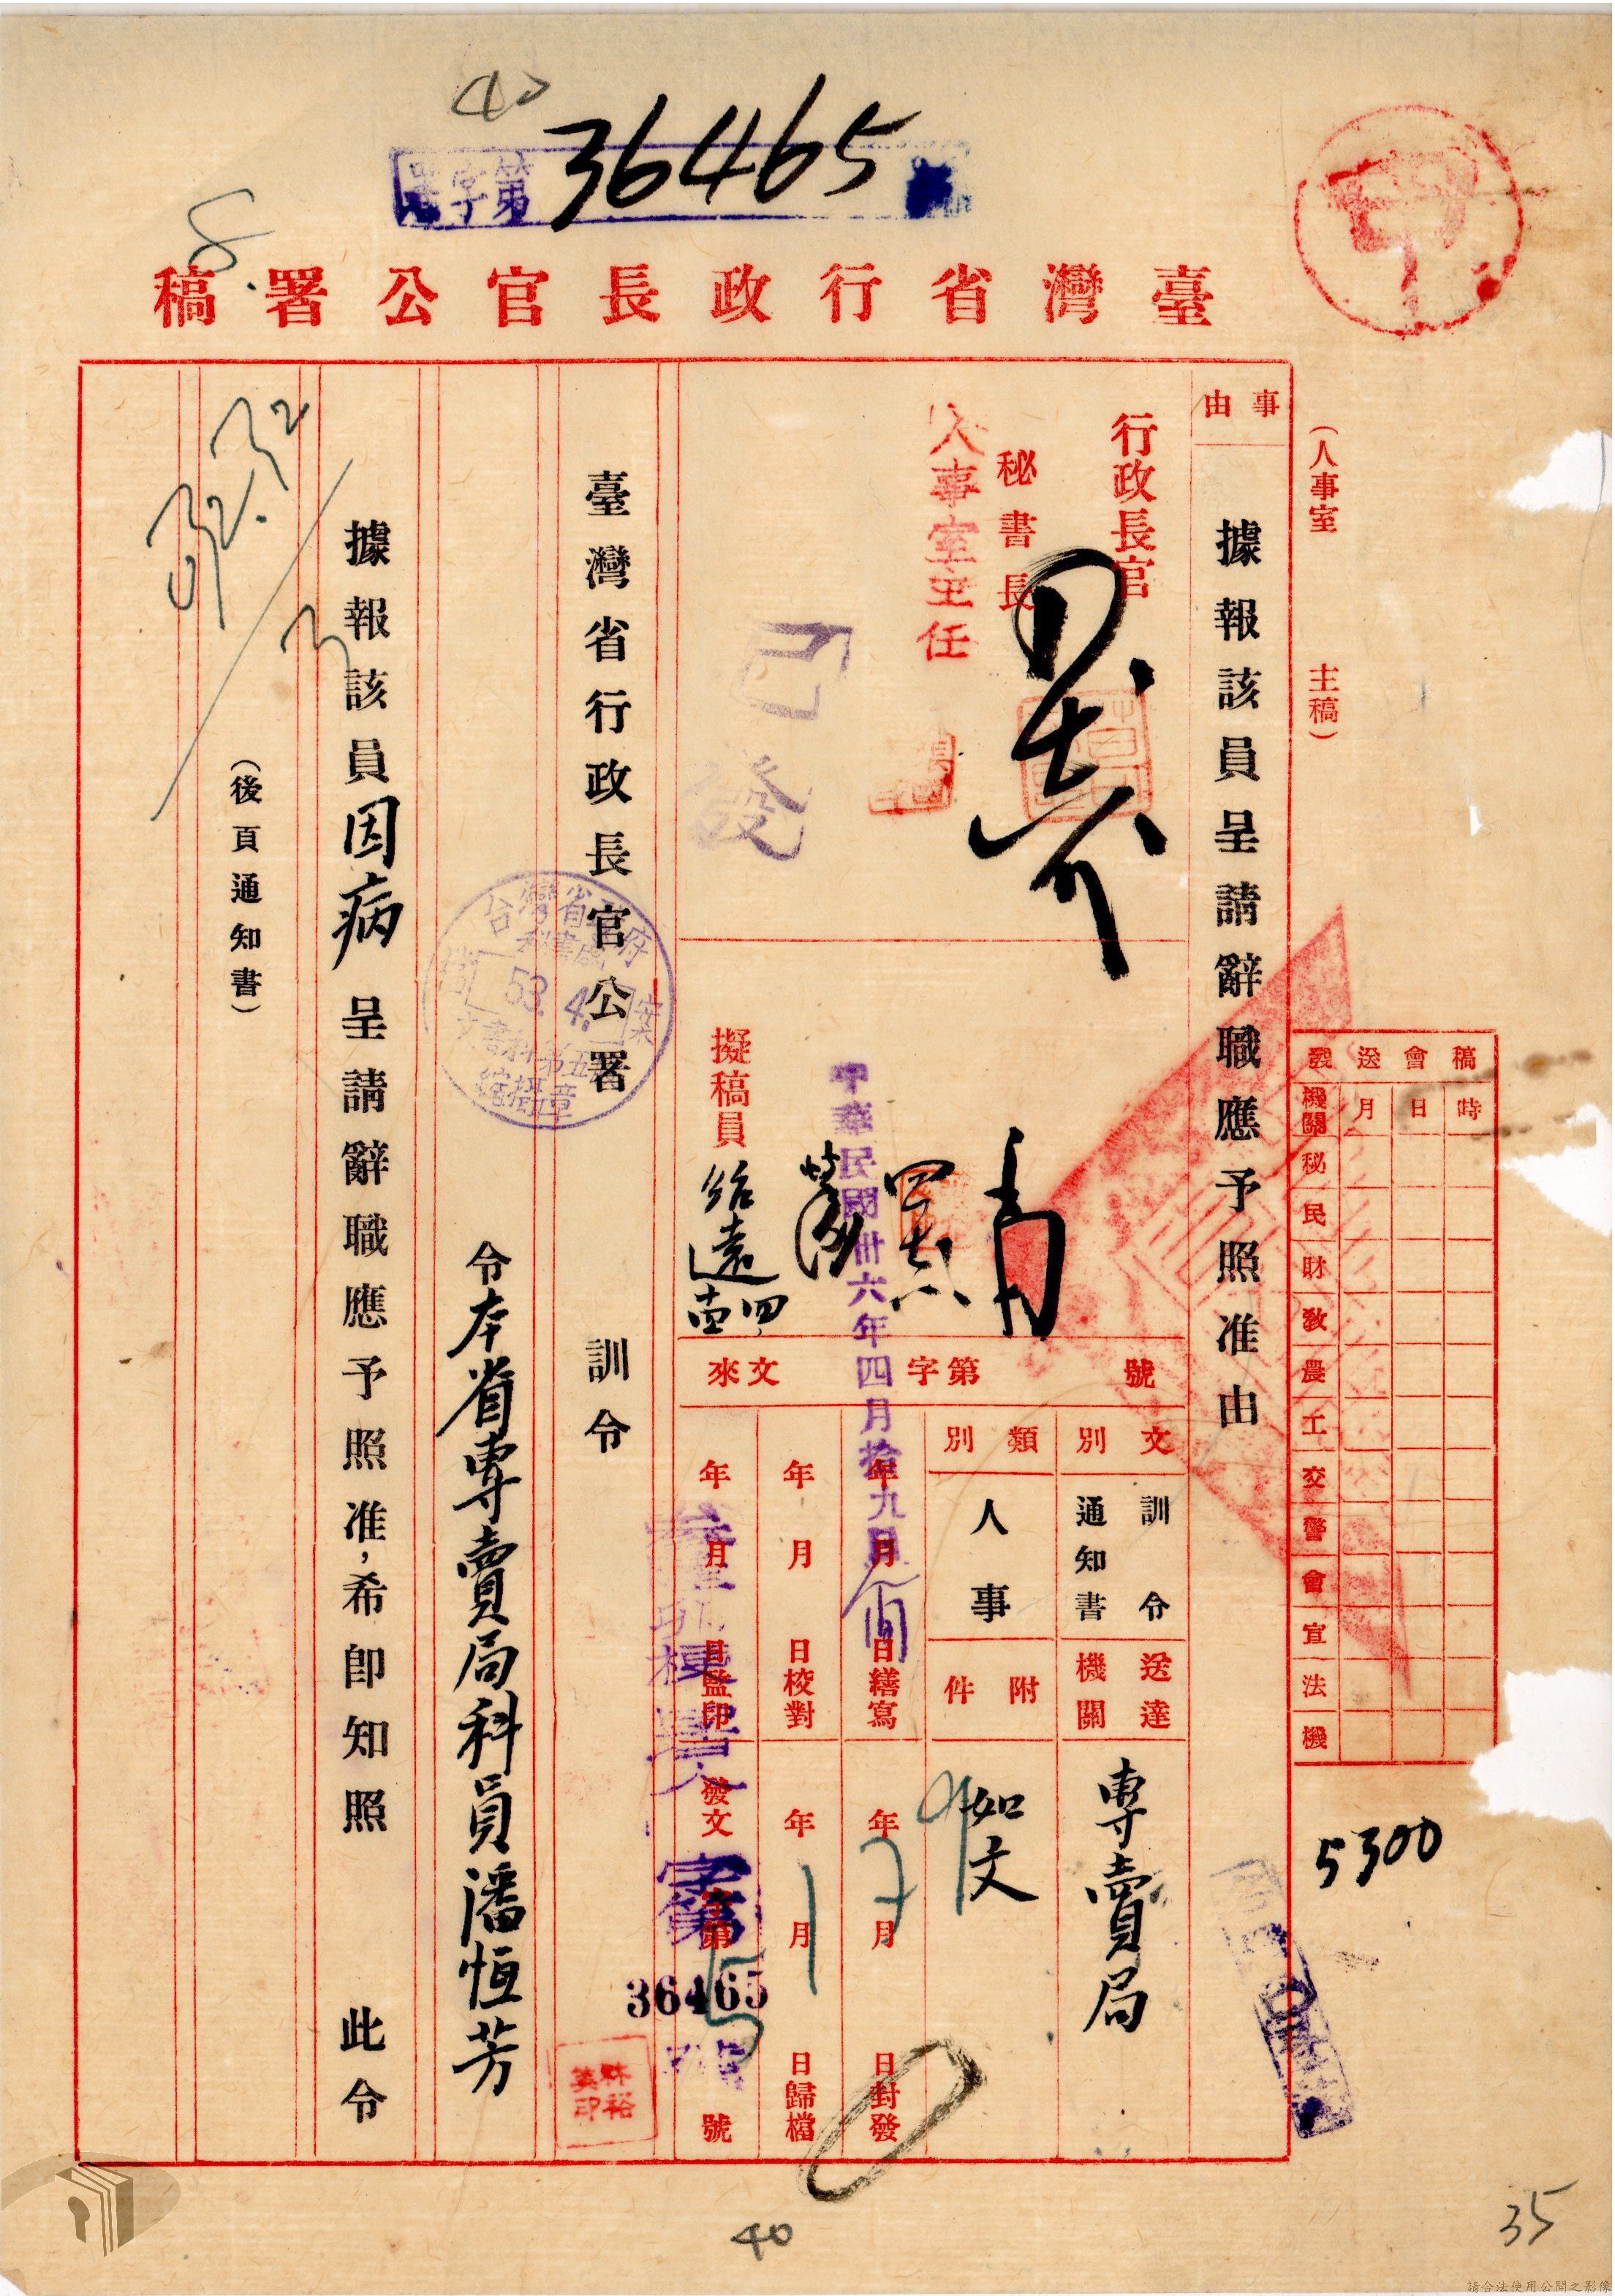 40
字第 36465
甲
臺灣省行政長官公署稿
(人事室 主稿)
事由
據報該員呈請辭職應予照准由
行政長官
秘書長
人事室主任
已發
擬稿員
紹遠
中華民國卅六年四月拾九日
來文 字第 號
文別 訓令 通知書
類別 人事
送達機關 專賣局
附件 如文
年月日繕寫
年月日校對
年月日監印
年月日封發
年月日歸檔
發文 字第 36465 號
稿會送發
時日月機關
秘
民
財
教
農
工
交
警
會
宣
法
機
5300
臺灣省行政長官公署 訓令
令本省專賣局科員潘恒芳
據報該員因病呈請辭職應予照准,希卽知照 此令
(後頁通知書)
53.4.
40
35
請合法使用公開之影像